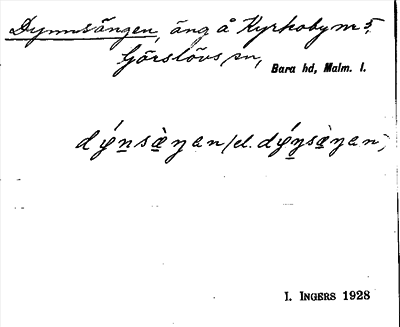 Dynnsängen, äng å Kyrkoby nr 5,
Görslövs sn, Bara hd, Malm. l.
dýn̲sæ̲̀ŋan/el. dýŋ̲sæ̲̀ŋan,
I. INGERS 1928